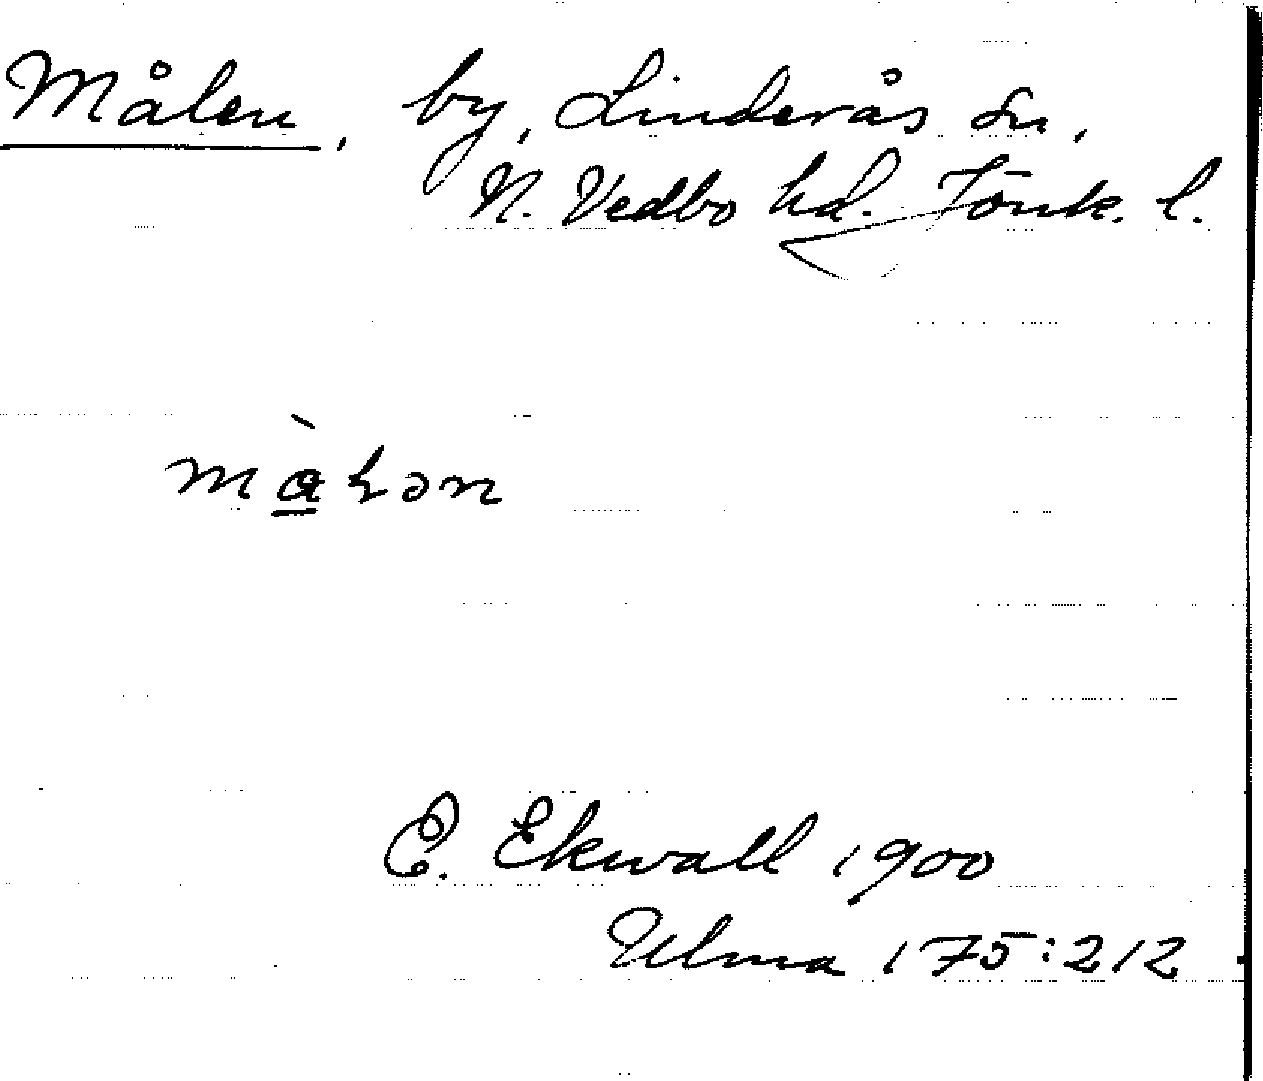 Målen, by, Linderås sn,
N. Vedbo hd. Jönk. l.
E. Ekwall 1900
Ulma 175:212